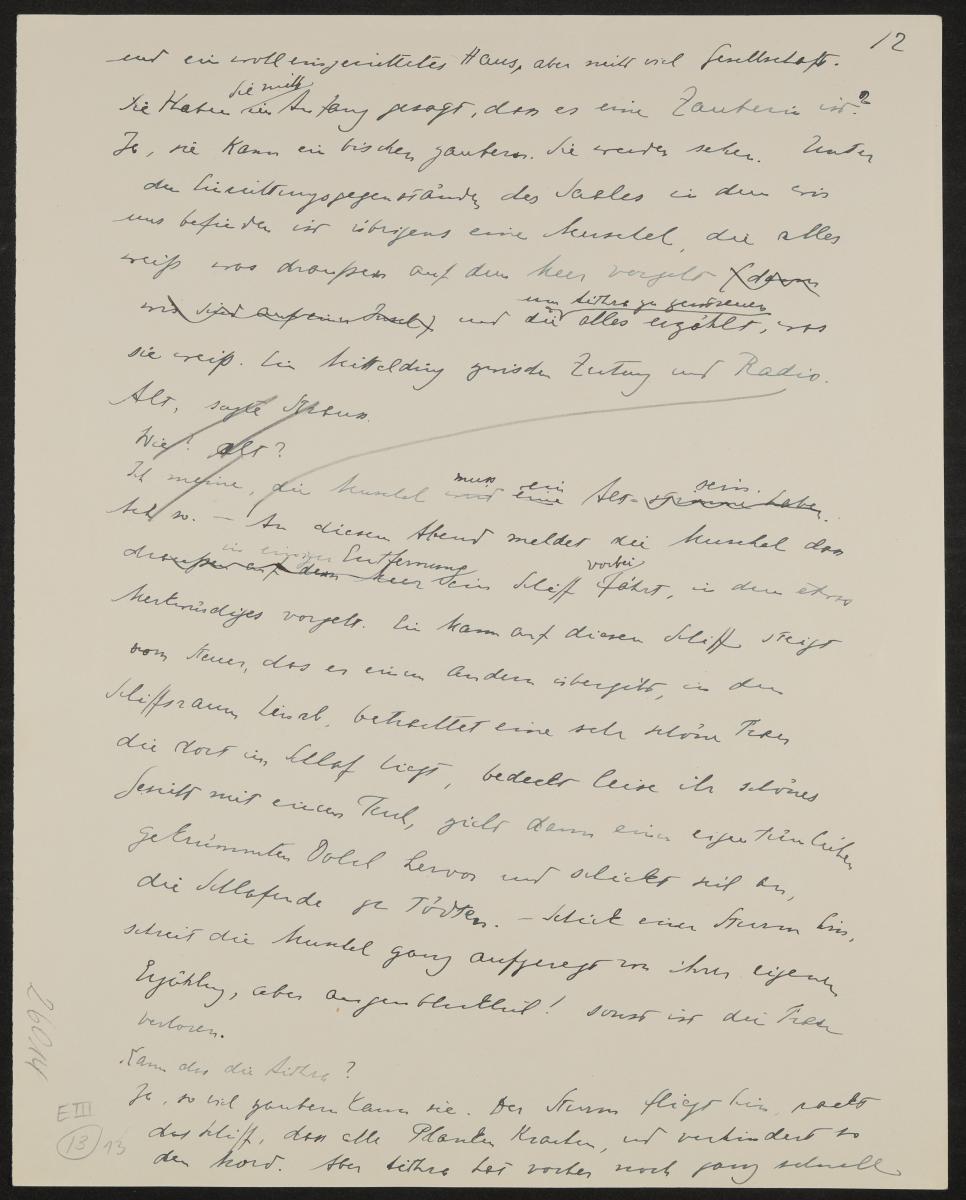 12
und ein wolleingerichtetes Haus, aber nicht viel Gesellschaft.
Sie nicht
Sie Haben im Anfang gesagt, dass es eine Zauberin ist?
Ja, sie Kann ein bischen zaubern. Sie werden sehen. Unter
den Einrittungsgegenständen des Saales in dem wir
uns befinden ist übrigens eine Muschel, die alles
weiß was draußen auf dem Meer vorgeht (denn
um Aithra zu zerstreuen
wir sind auf einer Insel) und die alles erzählt, was
sie weiß. Ein Mittelding zwischen Zeitung und Radio.
Alt, sagte Strauss.
Wie? Alt?
muss ein sein.
Ich meine, die Muschel wird eine Alt-stimme haben.
Ach so. – An diesem Abend meldet die Muschel dass
in einiger Entfernung vorbei
draußen auf dem Meer ein Schiff fährt, in dem etwas
Merkwürdiges vorgeht. Ein Mann auf diesem Schiff steigt
vom Steuer, das er einem andern übergibt, in den
Schiffsraum hinab, betrachtet eine sehr schöne Frau
die dort im Schlaf liegt, bedeckt leise ihr schönes
Gesicht mit einem Tuch, zieht dann einen eigentümlichen
gekrümmten Dolch hervor und schickt sich an,
die Schlafende zu tödten. – Schick einen Sturm hin,
schreit die Muschel ganz aufgeregt von ihrer eigenen
Erzählung, aber augenblicklich! sonst ist die Frau
verloren.
Kann das die Aithra?
Ja, so viel zaubern kann sie. Der Sturm fliegt hin, packt
das Schiff, dass alle Planken Krachen, und verhindert so
den Mord. Aber Aithra hat vorher noch ganz schnell
26014
E III
13 13